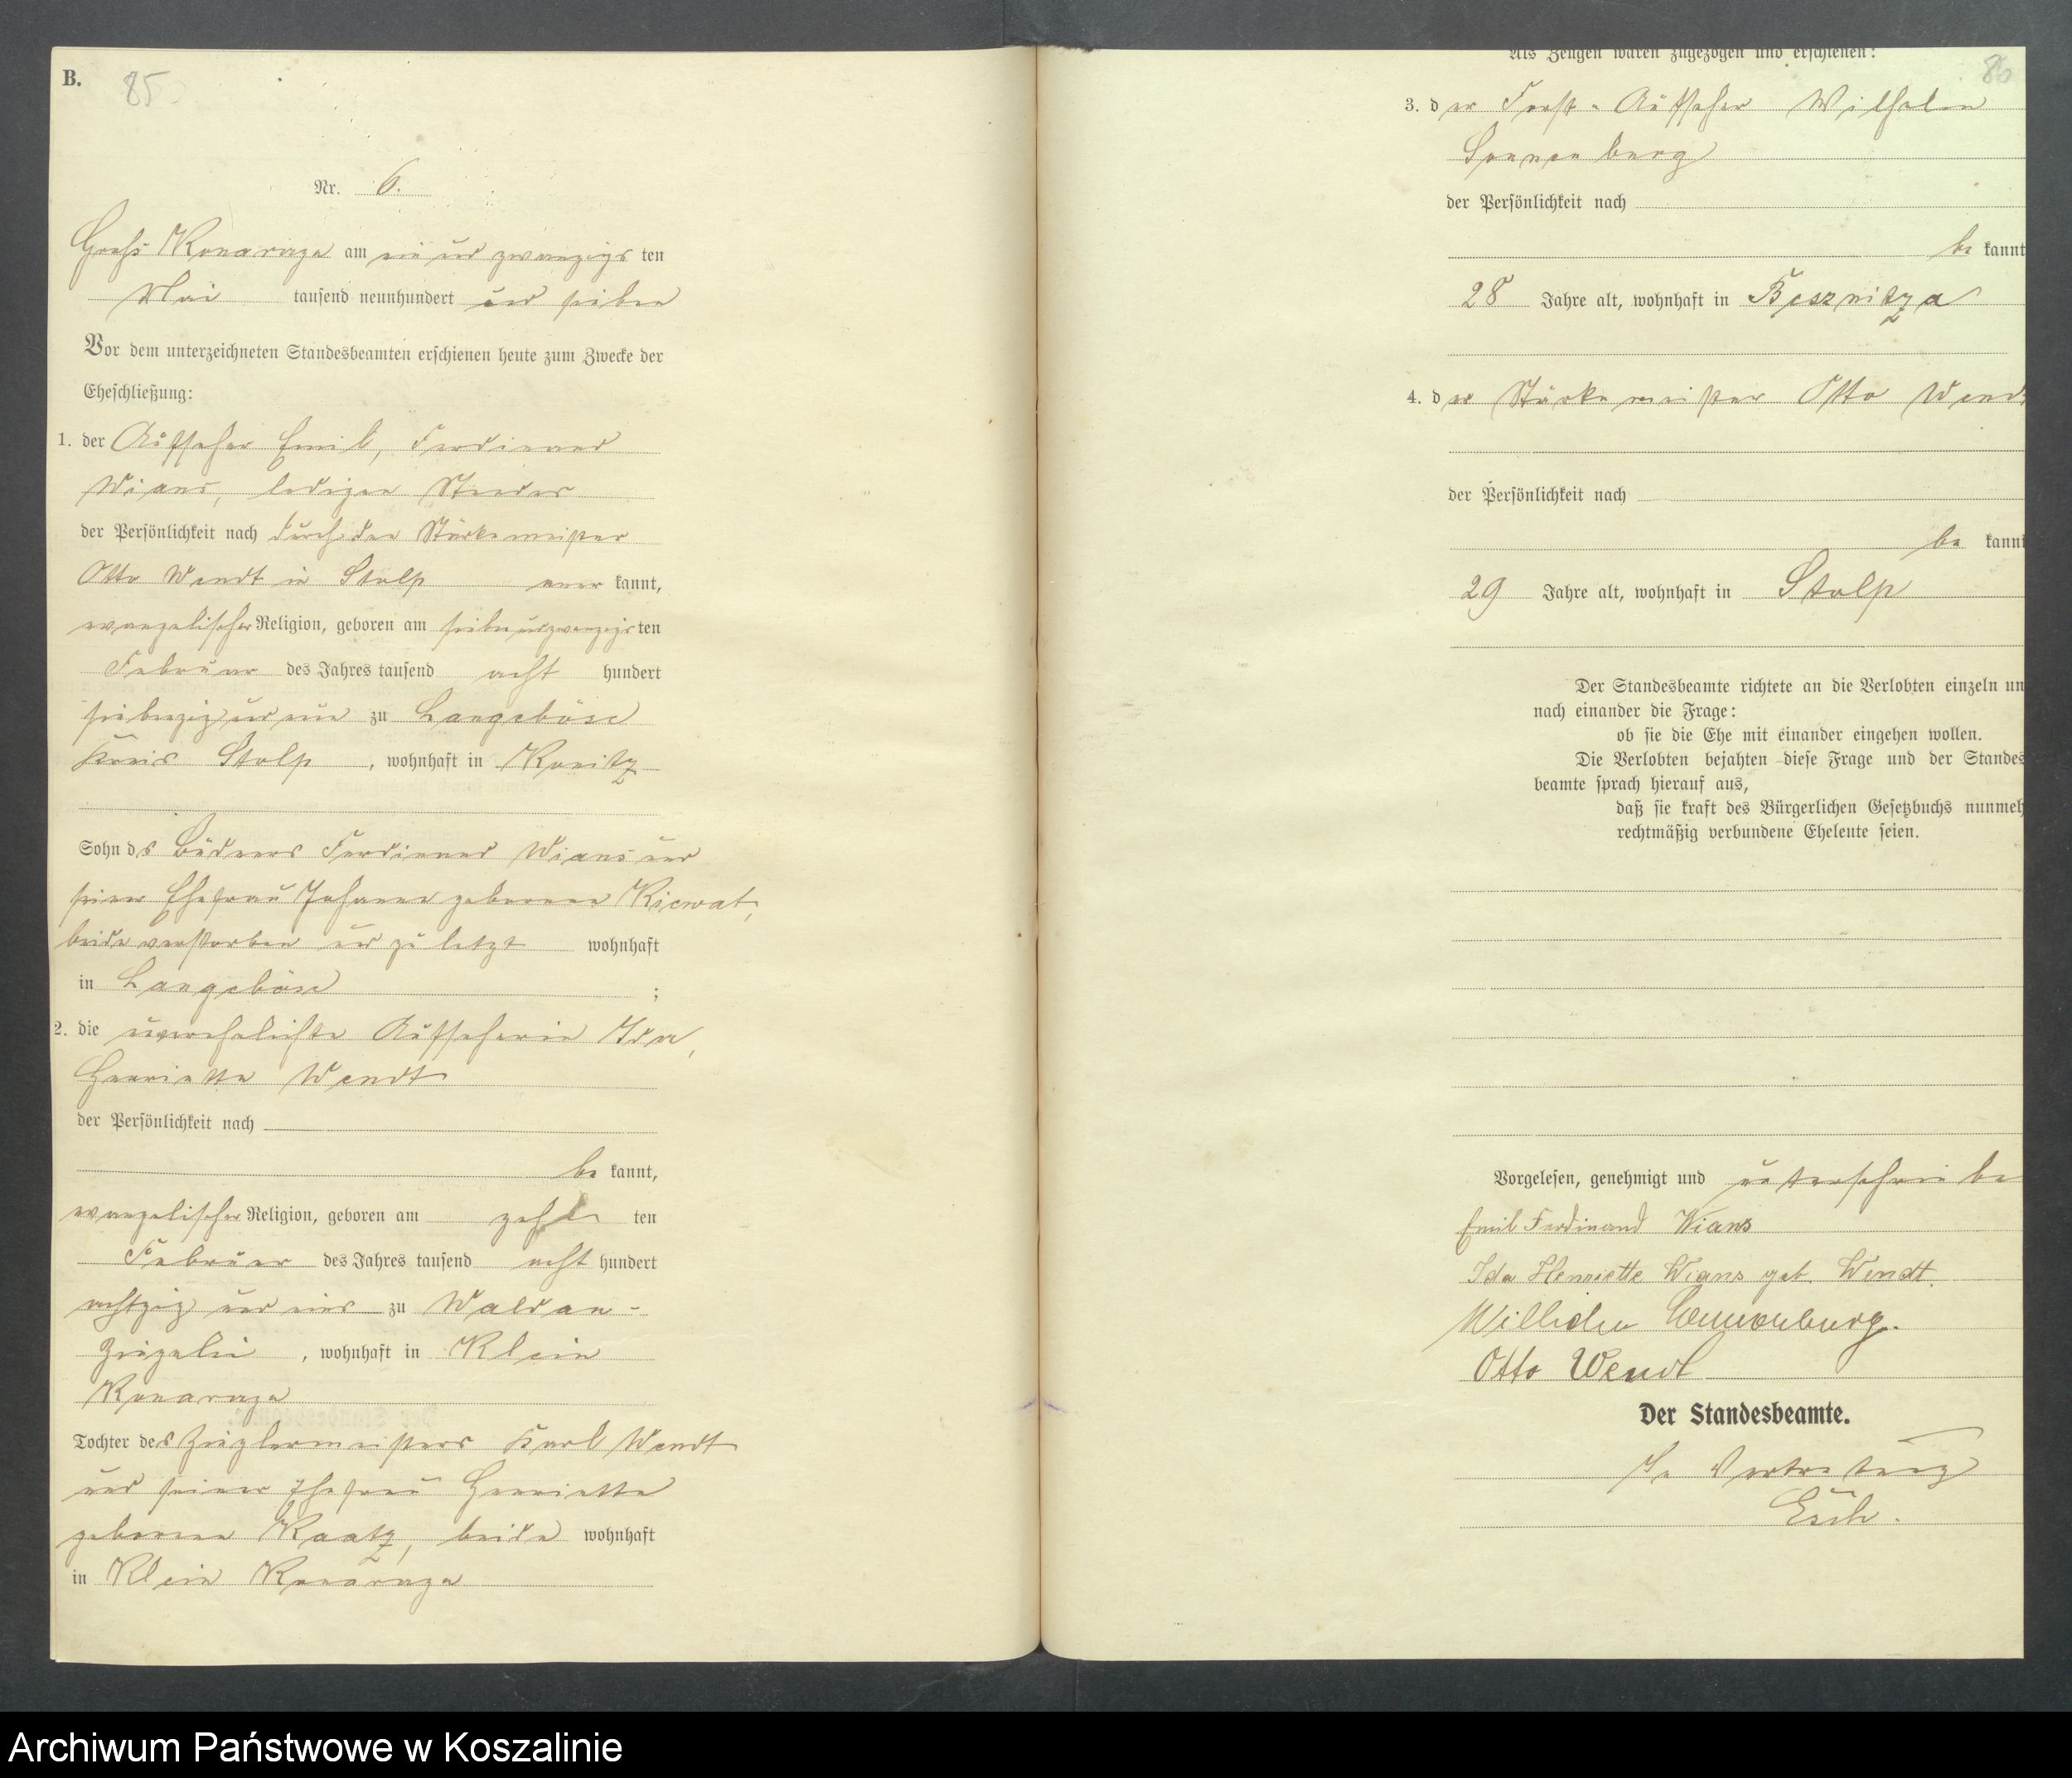 B. 85
Nr. 6.
Groß Konarzyn am ein und zwanzigs ten
Mai tausend neunhundert und sieben
Vor dem unterzeichneten Standesbeamten erschienen heute zum Zwecke der
Eheschließung:
1. der Aufseher Emil, Ferdinand
Wians, ledigen Standes
der Persönlichkeit nach durch den Stärkemeister
Otto Wendt in Stolp aner kannt,
evangelischer Religion, geboren am siebenundzwanzigsten
Februar des Jahres tausend acht hundert
siebenzig und neun zu Langeböse
Kreis Stolp, wohnhaft in Konitz
Sohn ds Büdners Ferdinand Wians und
seiner Ehefrau Johanne geborene Kiewat,
beide verstorben und zuletzt wohnhaft
in Langeböse ;
2. die unverehelichte Aufseherin Ida,
Henriette Wendt
der Persönlichkeit nach
be kannt,
evangelischer Religion, geboren am zehn ten
Februar des Jahres tausend acht hundert
achtzig und eins zu Waldau-
Ziegelei, wohnhaft in Klein
Konarzyn
Tochter des Zieglermeisters Karl Wendt
und seiner Ehefrau Henriette
geborene Kaatz, beide wohnhaft
in Klein Konarzyn
Als Zeugen waren zugezogen und erschienen: 86
3. der Forst-Aufseher Wilhelm
Sonnenburg
der Persönlichkeit nach
be kannt
28 Jahre alt, wohnhaft in
4. der Stärkemeister Otto Wendt
der Persönlichkeit nach
be kannt
29 Jahre alt, wohnhaft in Stolp
Der Standesbeamte richtete an die Verlobten einzeln un
nach einander die Frage:
ob sie die Ehe mit einander eingehen wollen.
Die Verlobten bejahten diese Frage und der Standes
beamte sprach hierauf aus,
daß sie kraft des Bürgerlichen Gesetzbuchs nunmeh
rechtmäßig verbundene Eheleute seien.
Vorgelesen, genehmigt und unterschriebe
Emil Ferdinand Wians
Ida Henriette Wians geb. Wendt.
Wilhelm Sonnenburg.
Otto Wendt
Der Standesbeamte.
In Vertretung
Esch.
Archiwum Państwowe w Koszalinie